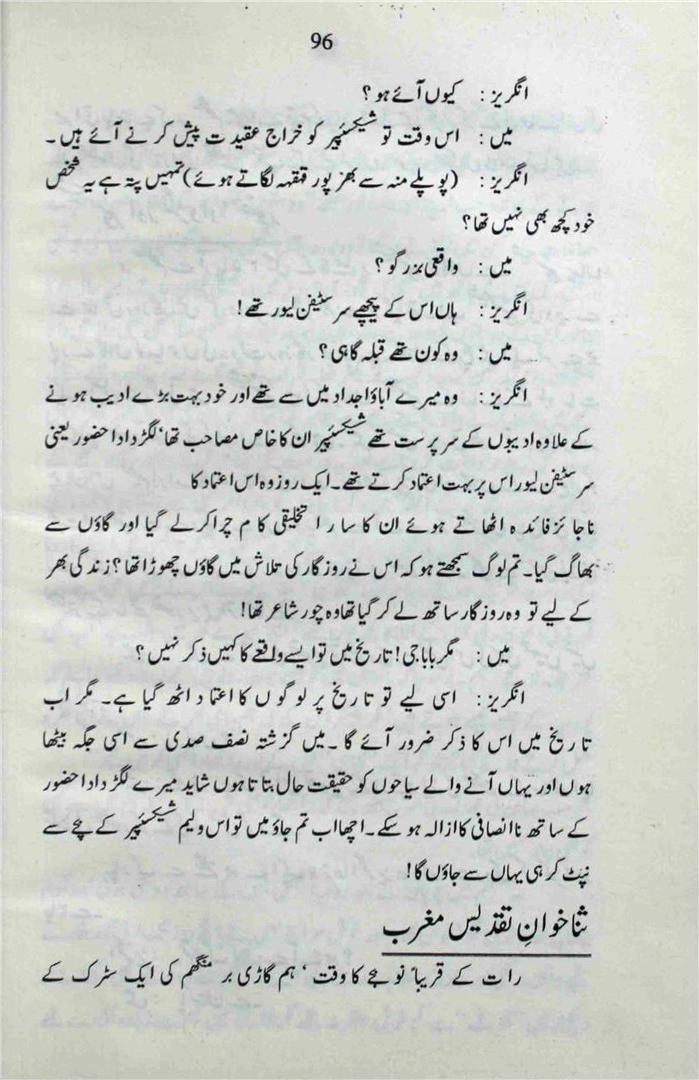 96
انگریز: کیوں آئے ہو؟
میں: اس وقت تو شیکسپیر کو خراج عقیدت پیش کرنے آئے ہیں۔
انگریز: (پوپلے منہ سے بھرپور قہقہہ لگاتے ہوئے) تمہیں پتہ ہے یہ شخص
خود کچھ بھی نہیں تھا؟
میں: واقعی بزرگو؟
انگریز: ہاں اس کے پیچھے سر سٹیفن لیور تھے!
میں: وہ کون تھے قبلہ گاہی؟
انگریز: وہ میرے آباؤ اجداد میں سے تھے اور خود بہت بڑے ادیب ہونے
کے علاوہ ادیبوں کے سرپرست تھے شیکسپیر ان کا خاص مصاحب تھا‘ لگڑدادا حضور یعنی
سر سٹیفن لیور اس پر بہت اعتماد کرتے تھے۔ ایک روز وہ اس اعتماد کا
ناجائز فائدہ اٹھاتے ہوئے ان کا سارا تخلیقی کام چرا کر لے گیا اور گاؤں سے
بھاگ گیا۔ تم لوگ سمجھتے ہو کہ اس نے روزگار کی تلاش میں گاؤں چھوڑا تھا؟ زندگی بھر
کے لیے تو وہ روزگار ساتھ لے کر گیا تھا وہ چور شاعر تھا!
میں: مگر بابا جی! تاریخ میں تو ایسے واقعے کا کہیں ذکر نہیں؟
انگریز: اسی لیے تو تاریخ پر لوگوں کا اعتماد اٹھ گیا ہے۔ مگر اب
تاریخ میں اس کا ذکر ضرور آئے گا۔ میں گزشتہ نصف صدی سے اسی جگہ بیٹھا
ہوں اور یہاں آنے والے سیاحوں کو حقیقت حال بتاتا ہوں شاید میرے لگڑدادا حضور
کے ساتھ ناانصافی کا ازالہ ہو سکے۔ اچھا اب تم جاؤ میں تو اس ولیم شیکسپیر کے بچے سے
نپٹ کر ہی یہاں سے جاؤں گا!
ثناخوانِ تقدیس مغرب
رات کے قریباً نو بجے کا وقت‘ ہم گاڑی برمنگھم کی ایک سڑک کے